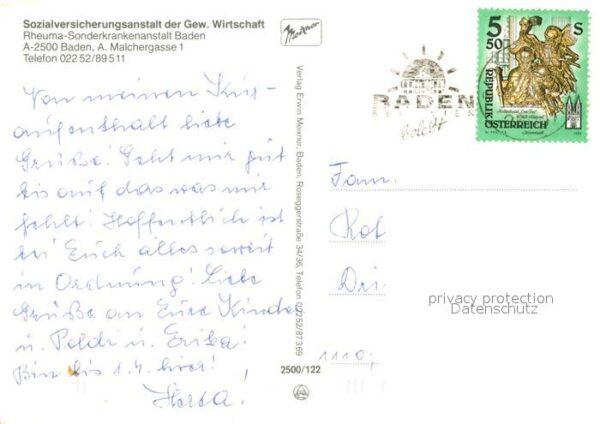 Sozialversicherungsanstalt der Gew. Wirtschaft
Rheuma-Sonderkrankenanstalt Baden
A-2500 Baden, A. Malchergasse 1
Telefon 022 52/89 5 11
Von meinem Kur-
aufenthalt liebe
Grüße! Geht mir gut
bis auf das was mir
fehlt! Hoffentlich ist
bei Euch alles soweit
in Ordnung! Liebe
Grüße an Eure Kinder
u. Poldi u. Erika!
Bin bis 1.4. hier!
Herta!
Verlag Erwin Meixner, Baden, Roseggerstraße 34/36, Telefon 02252/87369
2500/122
BADEN
BEI WIEN
belebt
5
50
S
REPUBLIK
ÖSTERREICH
Fam.
Kot
Dri
1110,
privacy protection
Datenschutz